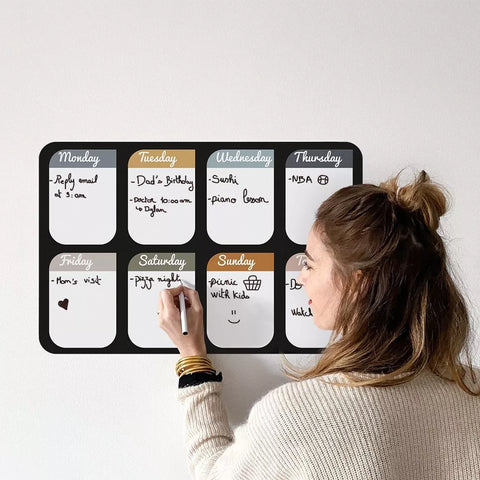 Monday
- Reply email
at 9:am
Tuesday
- Dad's Birthday
- Doctor 10:00am
↳ Dylan
Wednesday
- Sushi
- piano lesson
Thursday
- NBA
Friday
- Mom's visit
Saturday
- pizza night
Sunday
- picnic
with kids